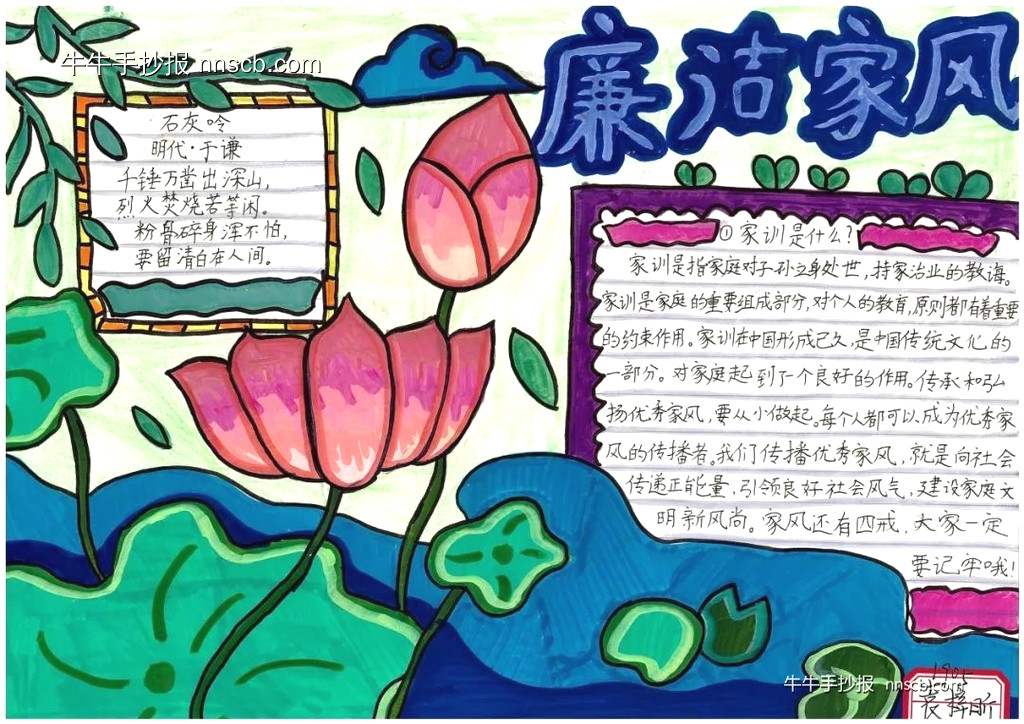 牛牛手抄报 nnscb.com
廉洁家风
石灰呤
明代·于谦
千锤万凿出深山,
烈火焚烧若等闲。
粉骨碎身浑不怕,
要留清白在人间。
①家训是什么?
家训是指家庭对子孙立身处世,持家治业的教诲。
家训是家庭的重要组成部分,对个人的教育,原则都有着重要
的约束作用。家训在中国形成已久,是中国传统文化的
一部分。对家庭起到了个良好的作用。传承和弘
扬优秀家风,要从小做起。每个人都可以成为优秀家
风的传播者。我们传播优秀家风,就是向社会
传递正能量,引领良好社会风气,建设家庭文
明新风尚。家风还有四戒,大家一定
要记牢哦!
牛牛手抄报 nnscb.com
袁梓昕